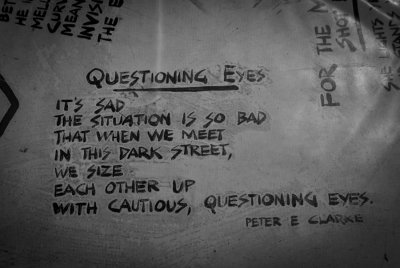 BET
HE W
MELL
CURV
MEAN
INVIS
THE E
QUESTIONING EYES
IT'S SAD
THE SITUATION IS SO BAD
THAT WHEN WE MEET
IN THIS DARK STREET,
WE SIZE
EACH OTHER UP
WITH CAUTIOUS, QUESTIONING EYES.
PETER E CLARKE
FOR THE M
SHO
SHE LIGHTS
STAN